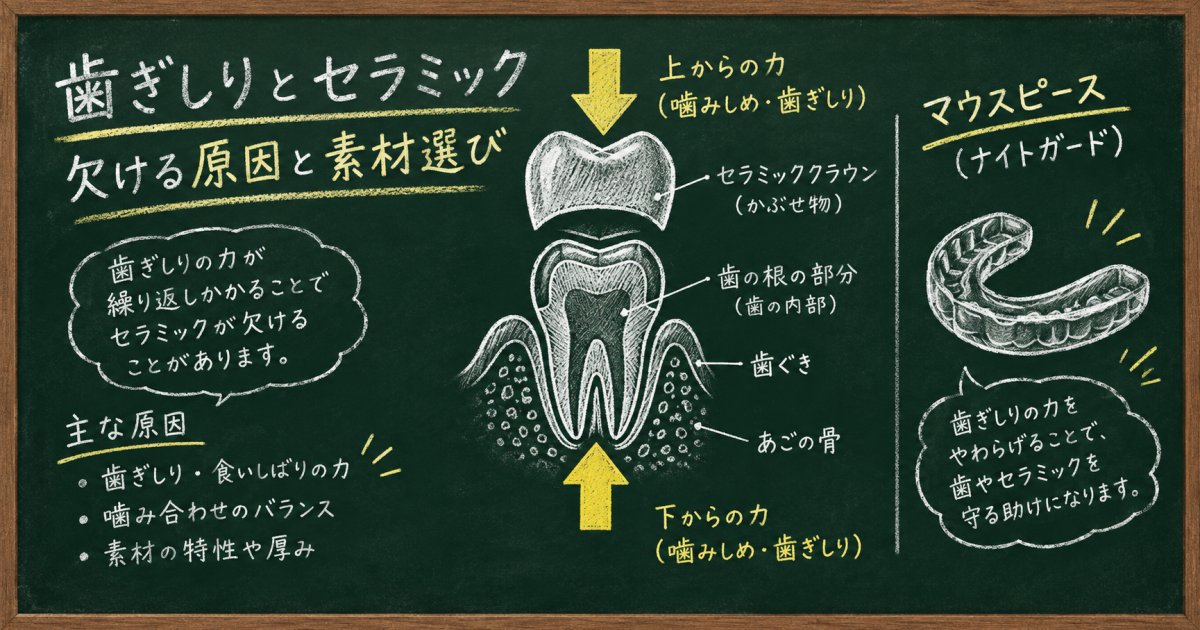 歯ぎしりとセラミック
欠ける原因と素材選び
歯ぎしりの力が
繰り返しかかることで
セラミックが欠ける
ことがあります。
主な原因
・歯ぎしり・食いしばりの力
・噛み合わせのバランス
・素材の特性や厚み
上からの力
(噛みしめ・歯ぎしり)
セラミッククラウン
(かぶせ物)
歯の根の部分
(歯の内部)
歯ぐき
あごの骨
下からの力
(噛みしめ・歯ぎしり)
マウスピース
(ナイトガード)
歯ぎしりの力を
やわらげることで、
歯やセラミックを
守る助けになります。